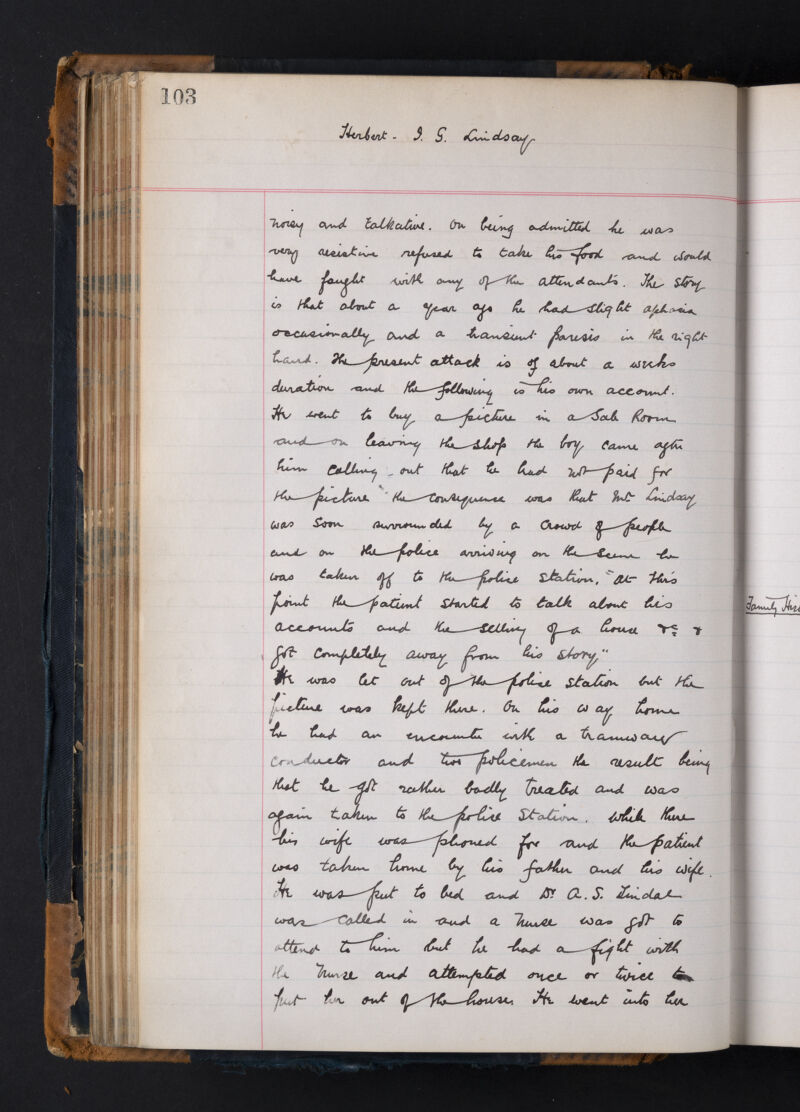 103
Herbert - I. G. Lindsay
noisy and talkative. On being admitted he was
very resistive refused to take his food and would
have fought with any of the attendants. The story
is that about a year ago he had slight aphasia
occasionally and a transient paresis in the right
hand. The present attack is of about a weeks
duration and the following is his own account.
He went to buy a picture in a Sale Room
and on leaving the shop the boy came after
him calling out that he had not paid for
the picture "the consequence was that Mr Lindsay
was soon surrounded by a crowd of people
and on the police arriving on the scene he
was taken off to the police station." At this
point the patient started to talk about his
accounts and the selling of a house &c &
got completely away from his story."
He was let out of the police station but the
picture was kept there. On his way home
he had an encounter with a tramway
conductor and two policemen the result being
that he got rather badly treated and was
again taken to the police station. While there
his wife was phoned for and the patient
was taken home by his father and his wife.
He was put to bed and Dr A. S.
was called in and a nurse was got to
attend to him but he had a fight with
the nurse and attempted once or twice to
put her out of the house. He went into her
Family